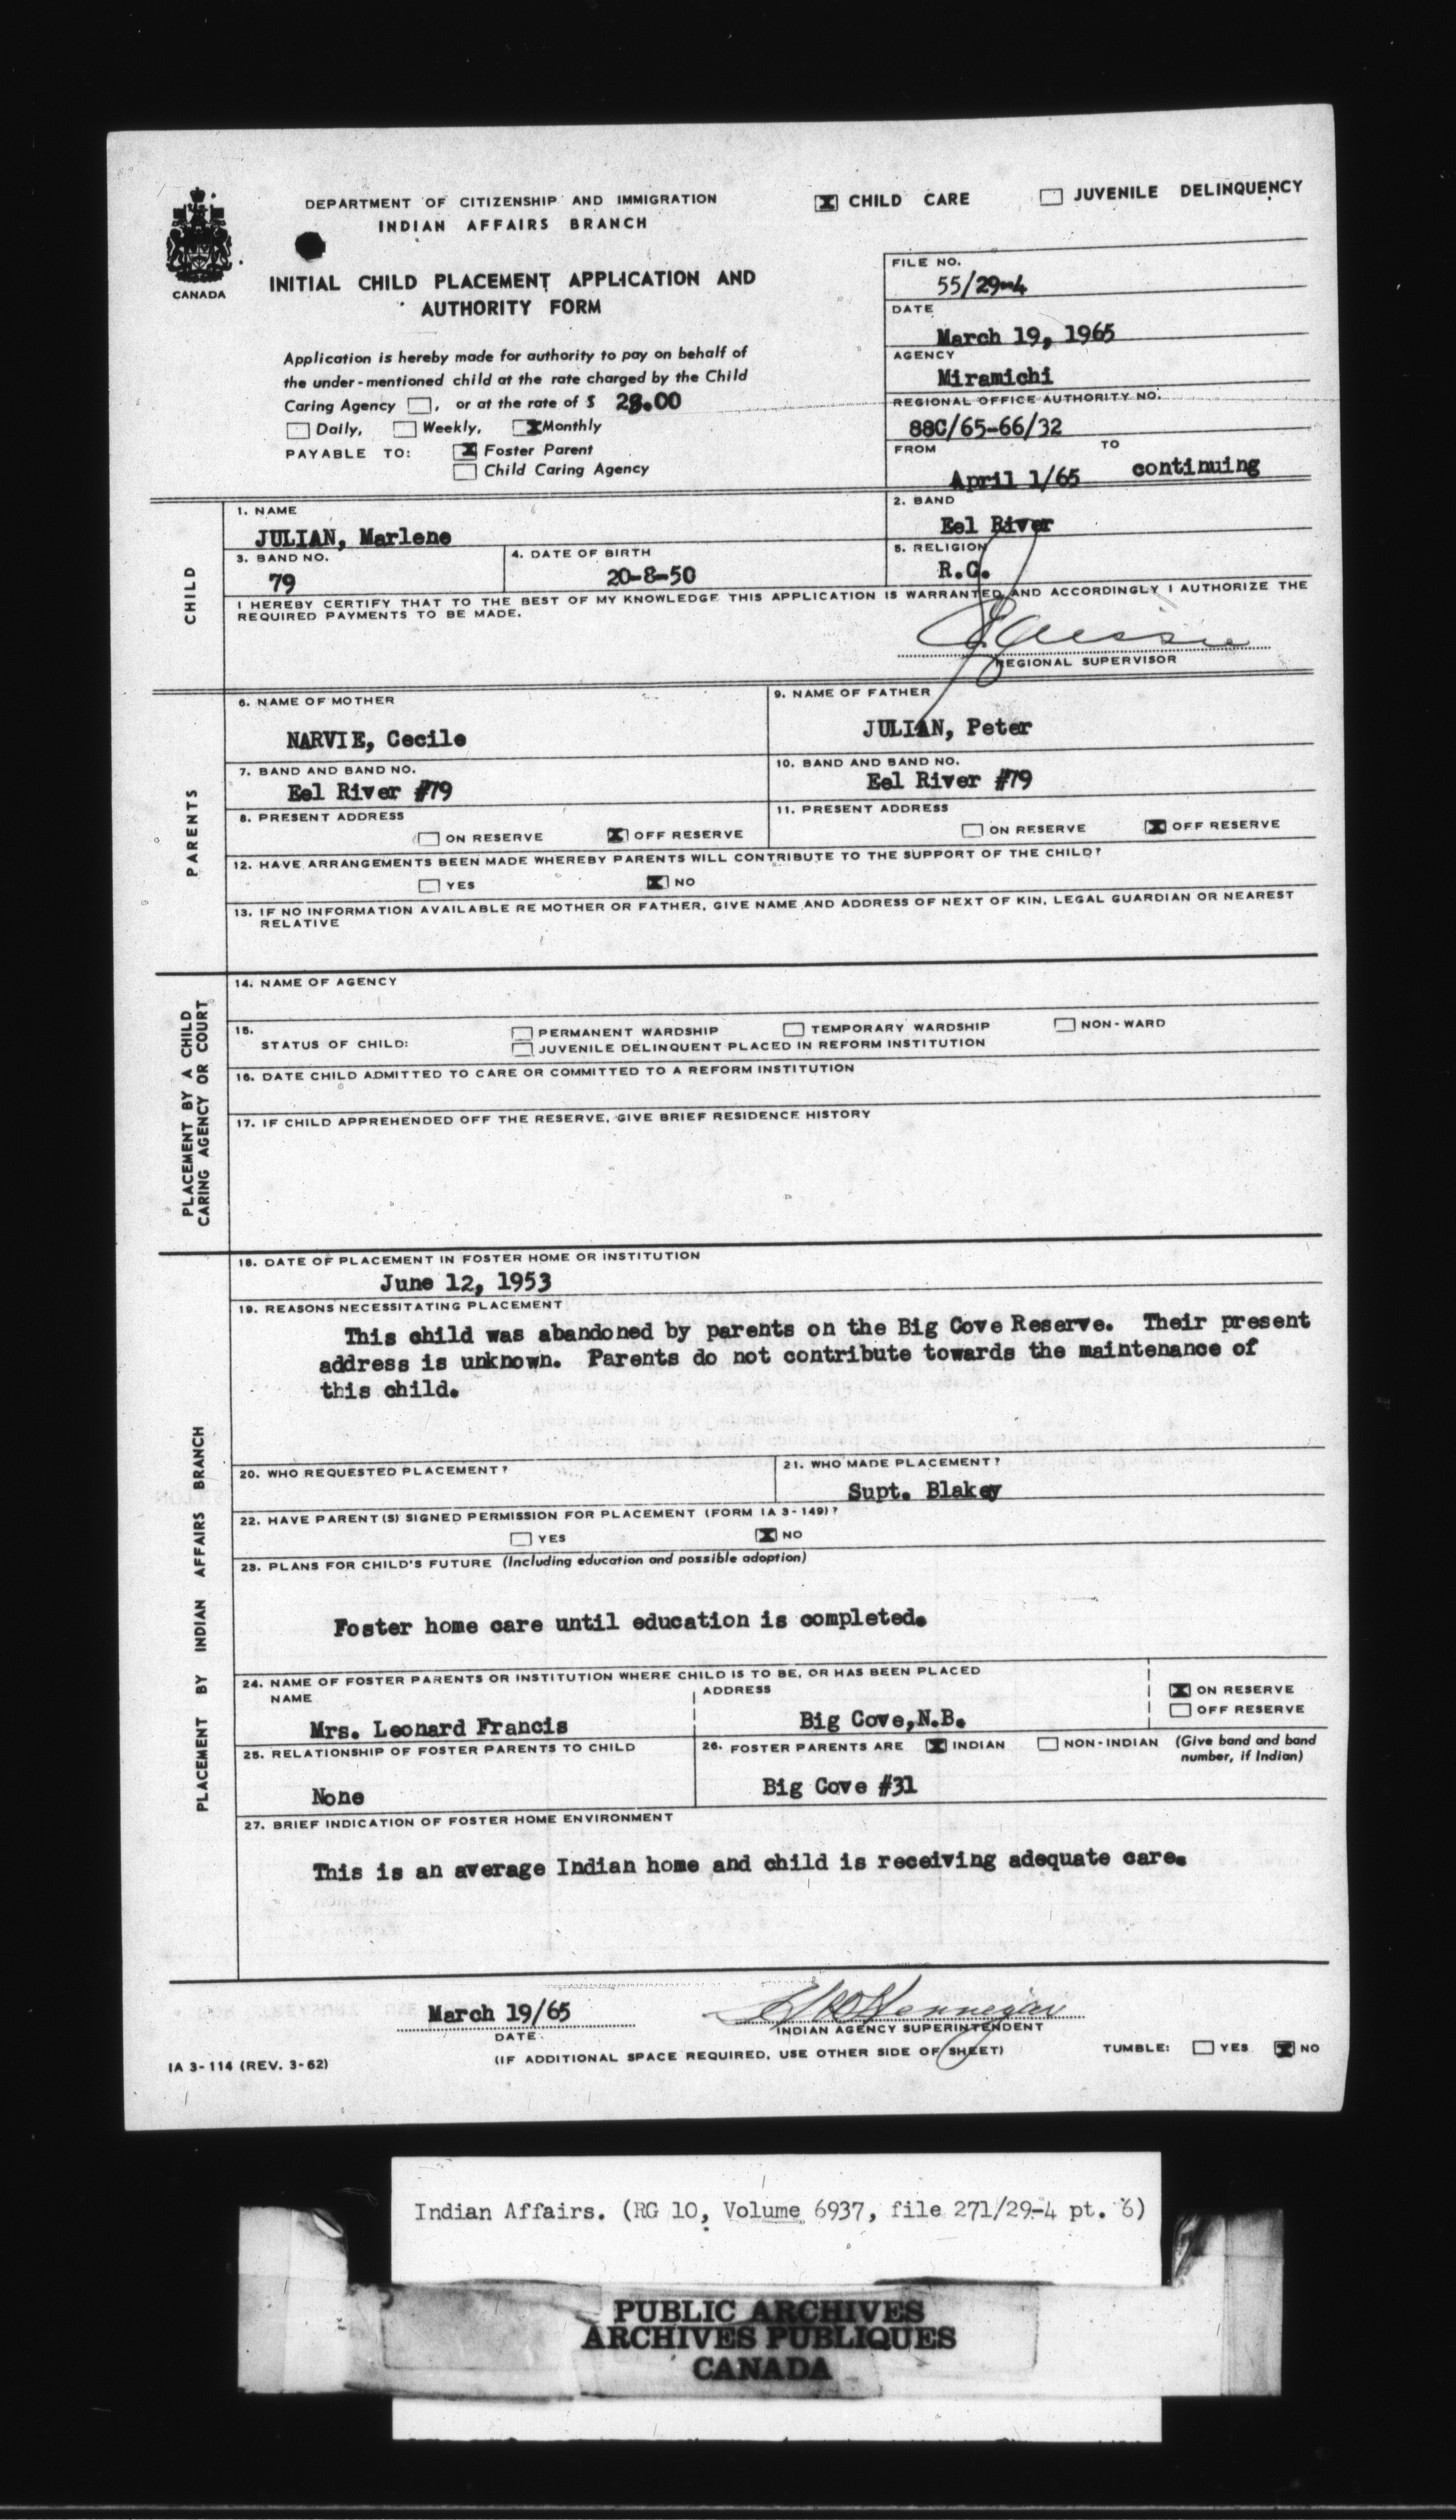 DEPARTMENT OF CITIZENSHIP AND IMMIGRATION
INDIAN AFFAIRS BRANCH
CHILD CARE
JUVENILE DELINQUENCY
CANADA
INITIAL CHILD PLACEMENT APPLICATION AND
AUTHORITY FORM
Application is hereby made for authority to pay on behalf of
the under-mentioned child at the rate charged by the Child
Caring Agency , or at the rate of $ 28.00
Daily, Weekly, X Monthly
PAYABLE TO: X Foster Parent
Child Caring Agency
FILE NO.
55/29-4
DATE
March 19, 1965
AGENCY
Miramichi
REGIONAL OFFICE AUTHORITY NO.
88C/65-66/32
FROM TO
April 1/65 continuing
CHILD
1. NAME
JULIAN, Marlene
2. BAND
Eel River
3. BAND NO.
79
4. DATE OF BIRTH
20-8-50
5. RELIGION
R.C.
I HEREBY CERTIFY THAT TO THE BEST OF MY KNOWLEDGE THIS APPLICATION IS WARRANTED AND ACCORDINGLY I AUTHORIZE THE
REQUIRED PAYMENTS TO BE MADE.
REGIONAL SUPERVISOR
PARENTS
6. NAME OF MOTHER
NARVIE, Cecile
9. NAME OF FATHER
JULIAN, Peter
7. BAND AND BAND NO.
Eel River #79
10. BAND AND BAND NO.
Eel River #79
8. PRESENT ADDRESS
ON RESERVE X OFF RESERVE
11. PRESENT ADDRESS
ON RESERVE X OFF RESERVE
12. HAVE ARRANGEMENTS BEEN MADE WHEREBY PARENTS WILL CONTRIBUTE TO THE SUPPORT OF THE CHILD?
YES X NO
13. IF NO INFORMATION AVAILABLE RE MOTHER OR FATHER, GIVE NAME AND ADDRESS OF NEXT OF KIN, LEGAL GUARDIAN OR NEAREST
RELATIVE
PLACEMENT BY A CHILD
CARING AGENCY OR COURT
14. NAME OF AGENCY
15.
STATUS OF CHILD:
PERMANENT WARDSHIP TEMPORARY WARDSHIP NON-WARD
JUVENILE DELINQUENT PLACED IN REFORM INSTITUTION
16. DATE CHILD ADMITTED TO CARE OR COMMITTED TO A REFORM INSTITUTION
17. IF CHILD APPREHENDED OFF THE RESERVE, GIVE BRIEF RESIDENCE HISTORY
PLACEMENT BY INDIAN AFFAIRS BRANCH
18. DATE OF PLACEMENT IN FOSTER HOME OR INSTITUTION
June 12, 1953
19. REASONS NECESSITATING PLACEMENT
This child was abandoned by parents on the Big Cove Reserve. Their present
address is unknown. Parents do not contribute towards the maintenance of
this child.
20. WHO REQUESTED PLACEMENT?
21. WHO MADE PLACEMENT?
Supt. Blakey
22. HAVE PARENT(S) SIGNED PERMISSION FOR PLACEMENT (FORM IA 3-149)?
YES X NO
23. PLANS FOR CHILD'S FUTURE (Including education and possible adoption)
Foster home care until education is completed.
24. NAME OF FOSTER PARENTS OR INSTITUTION WHERE CHILD IS TO BE, OR HAS BEEN PLACED
NAME
Mrs. Leonard Francis
ADDRESS
Big Cove,N.B.
X ON RESERVE
OFF RESERVE
25. RELATIONSHIP OF FOSTER PARENTS TO CHILD
None
26. FOSTER PARENTS ARE X INDIAN NON-INDIAN (Give band and band
number, if Indian)
Big Cove #31
27. BRIEF INDICATION OF FOSTER HOME ENVIRONMENT
This is an average Indian home and child is receiving adequate care.
March 19/65
DATE
INDIAN AGENCY SUPERINTENDENT
IA 3-114 (REV. 3-62)
(IF ADDITIONAL SPACE REQUIRED, USE OTHER SIDE OF SHEET)
TUMBLE: YES X NO
Indian Affairs. (RG 10, Volume 6937, file 271/29-4 pt. 6)
PUBLIC ARCHIVES
ARCHIVES PUBLIQUES
CANADA